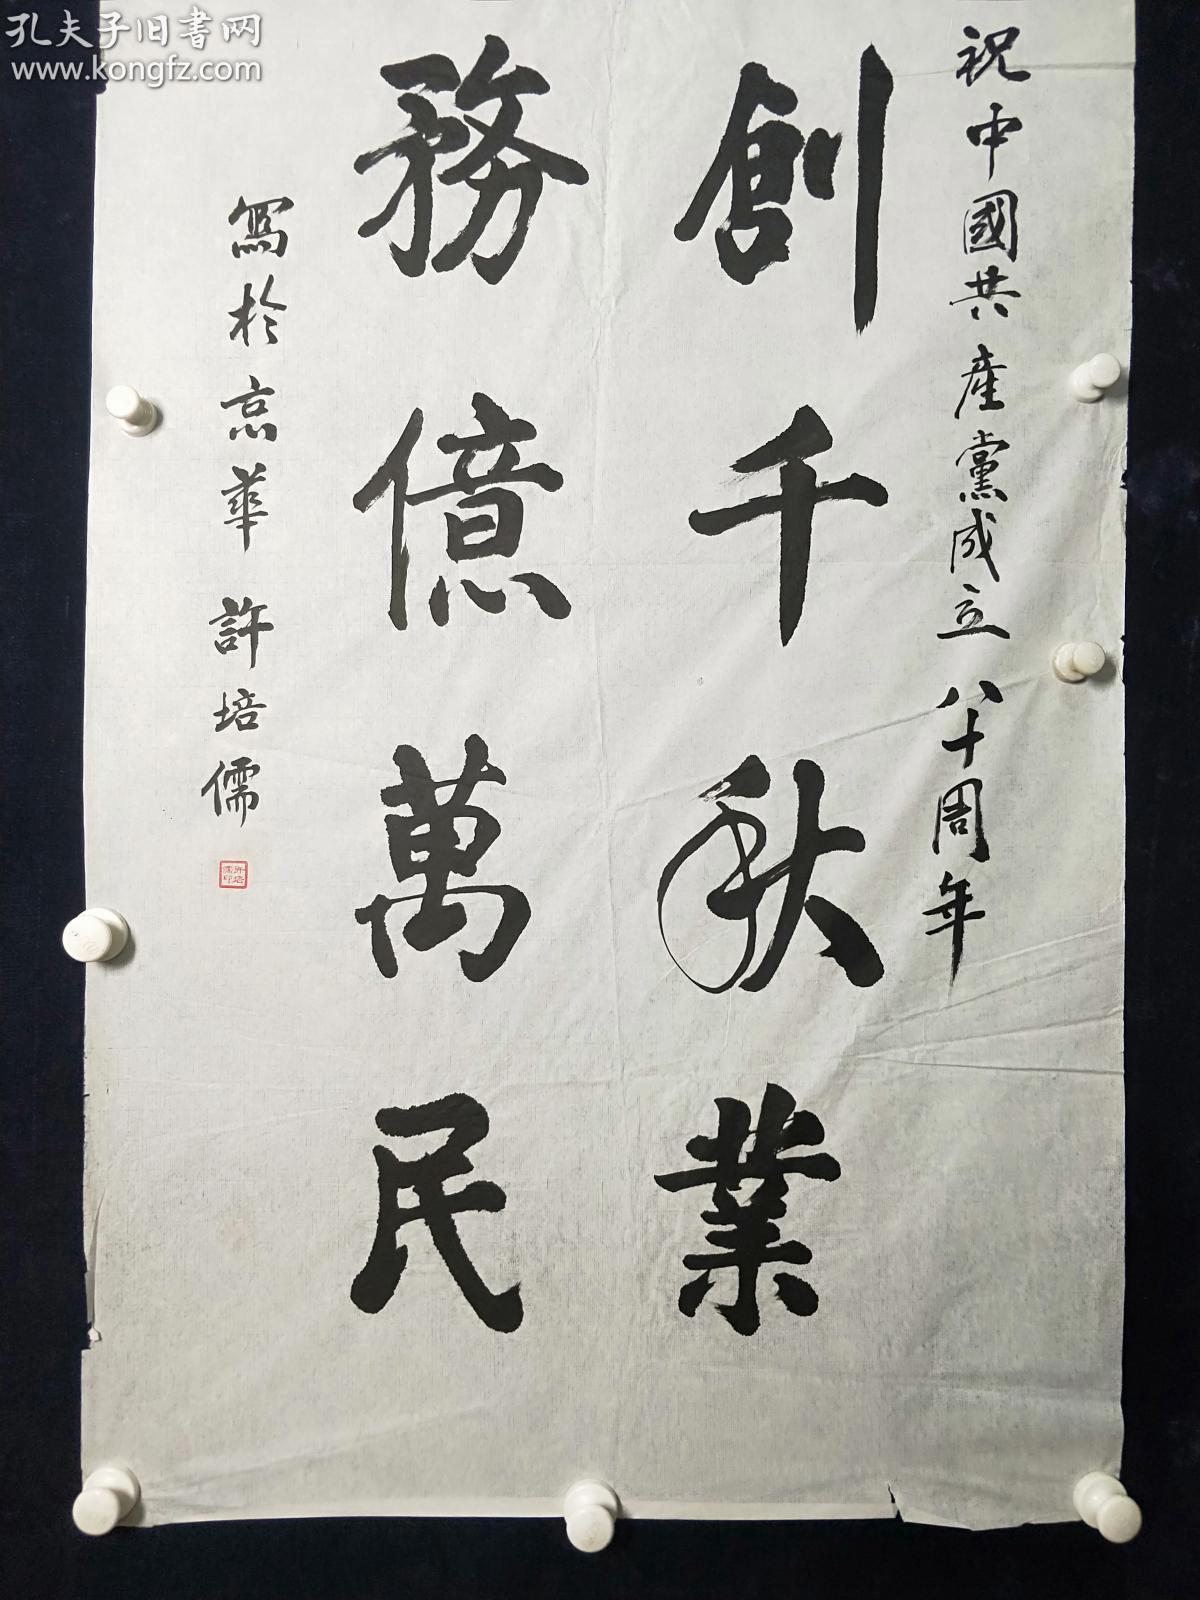 孔夫子旧書网
www.kongfz.com
祝中國共產黨成立八十周年
創千秋業
務億萬民
寫於京華 許培儒
許培儒印